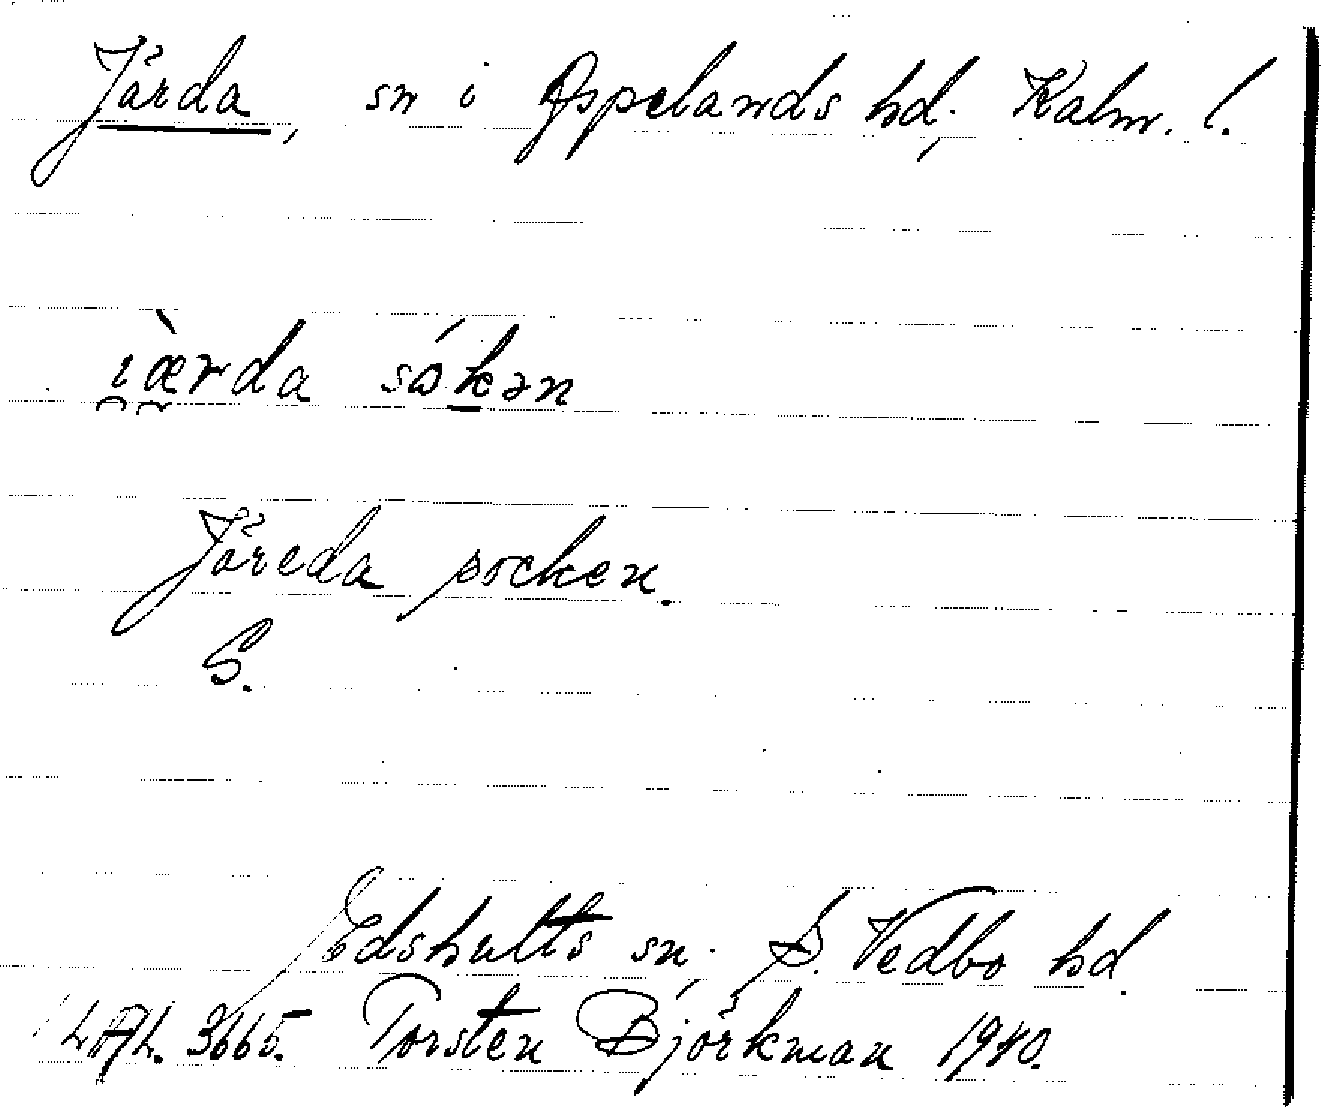 Järda, sn i Aspelands hd, Kalm. l.
i̯æ̀rda sókən
Järeda socken.
S.
Edshults sn, S. Vedbo hd.
3665. Torsten Björkman 1940.